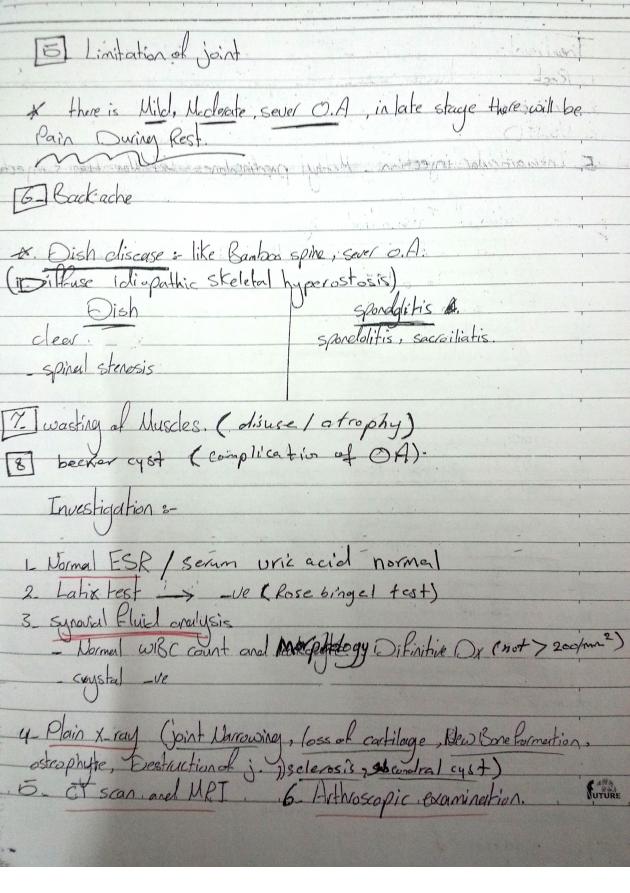 5 Limitation of joint
* there is Mild, Moderate, sever O.A, in late stage there will be
Pain During Rest.
6- Backache
*. Dish disease :- like Bamboo spine, sever O.A.
(Diffuse idiopathic skeletal hyperostosis)
Dish
spondylitis A.
clear.
spondolitis, sacroiliatis.
- spinal stenosis
7. wasting of Muscles. (disuse / atrophy)
8 becker cyst (complication of OA).
Investigation :-
1- Normal ESR / serum uric acid normal
2. Latix test → -ve (Rose bingel test)
3- synovial fluid analysis
- Normal WBC count and Morphology Difinitive Dx (not > 200/mm²)
- crystal -ve
4- Plain x-ray (joint Narrowing, loss of cartilage, New Bone formation,
osteophyte, Destruction of j. , sclerosis, subcondral cyst)
5- CT scan and MRI 6. Arthroscopic examination.
FUTURE